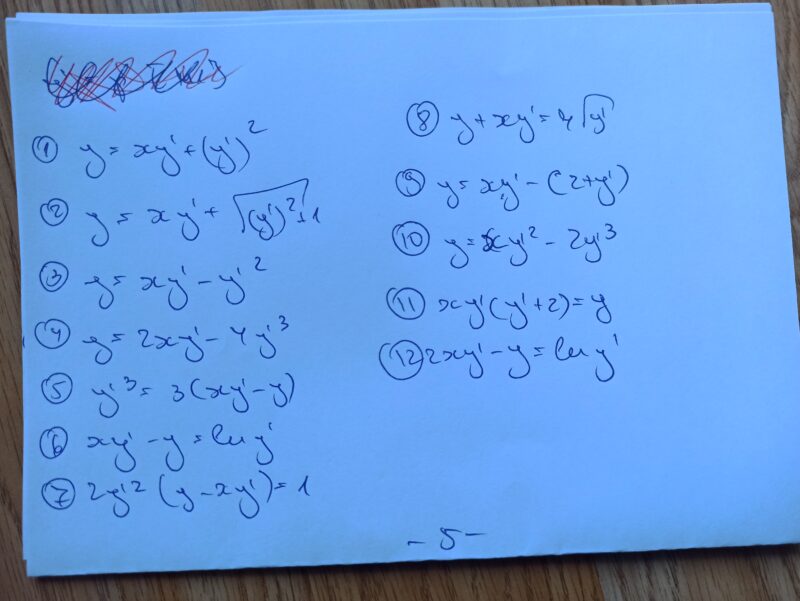 ① y = xy' + (y')²
② y = xy' + √((y')² + 1)
③ y = xy' - y'²
④ y = 2xy' - 4y'³
⑤ y'³ = 3(xy' - y)
⑥ xy' - y = ln y'
⑦ 2y'² (y - xy') = 1
⑧ y + xy' = 4√y'
⑨ y = xy' - (2 + y')
⑩ y = xy'² - 2y'³
⑪ xy'(y' + 2) = y
⑫ 2xy' - y = ln y'
- 5 -